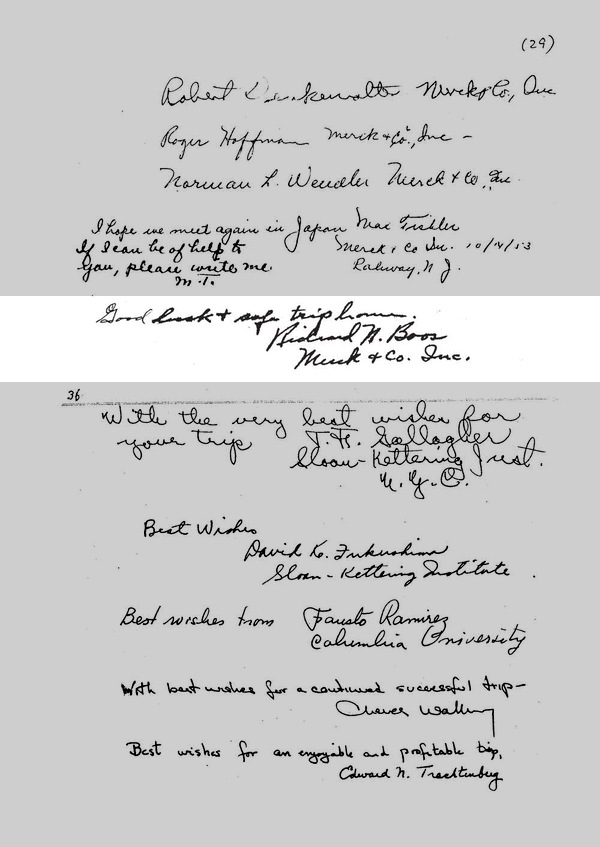 (29)
Robert Denkewalter Merck & Co., Inc
Roger Hoffman Merck & Co., Inc –
Norman L. Wendler Merck & Co., Inc.
I hope we meet again in Japan Max Tishler
If I can be of help to
Merck & Co Inc. 10/14/53
you, please write me
Rahway, N J.
M.T.
Good luck & safe trip home.
Richard N. Boos
Merck & Co. Inc.
36
With the very best wishes for
your trip T.F. Gallagher
Sloan-Kettering Inst.
N.Y.C.
Best Wishes
David K. Fukushima
Sloan-Kettering Institute
Best wishes from Fausto Ramirez
Columbia University
With best wishes for a continued successful trip –
Cheves Walling
Best wishes for an enjoyable and profitable trip,
Edward N. Trachtenberg